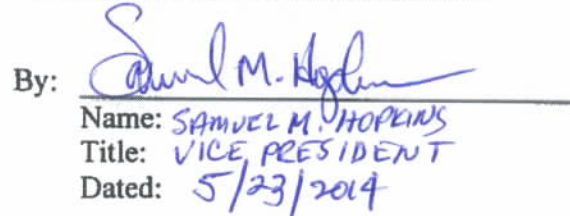 By: Samuel M. Hopkins
Name: SAMUEL M. HOPKINS
Title: VICE PRESIDENT
Dated: 5/23/2014